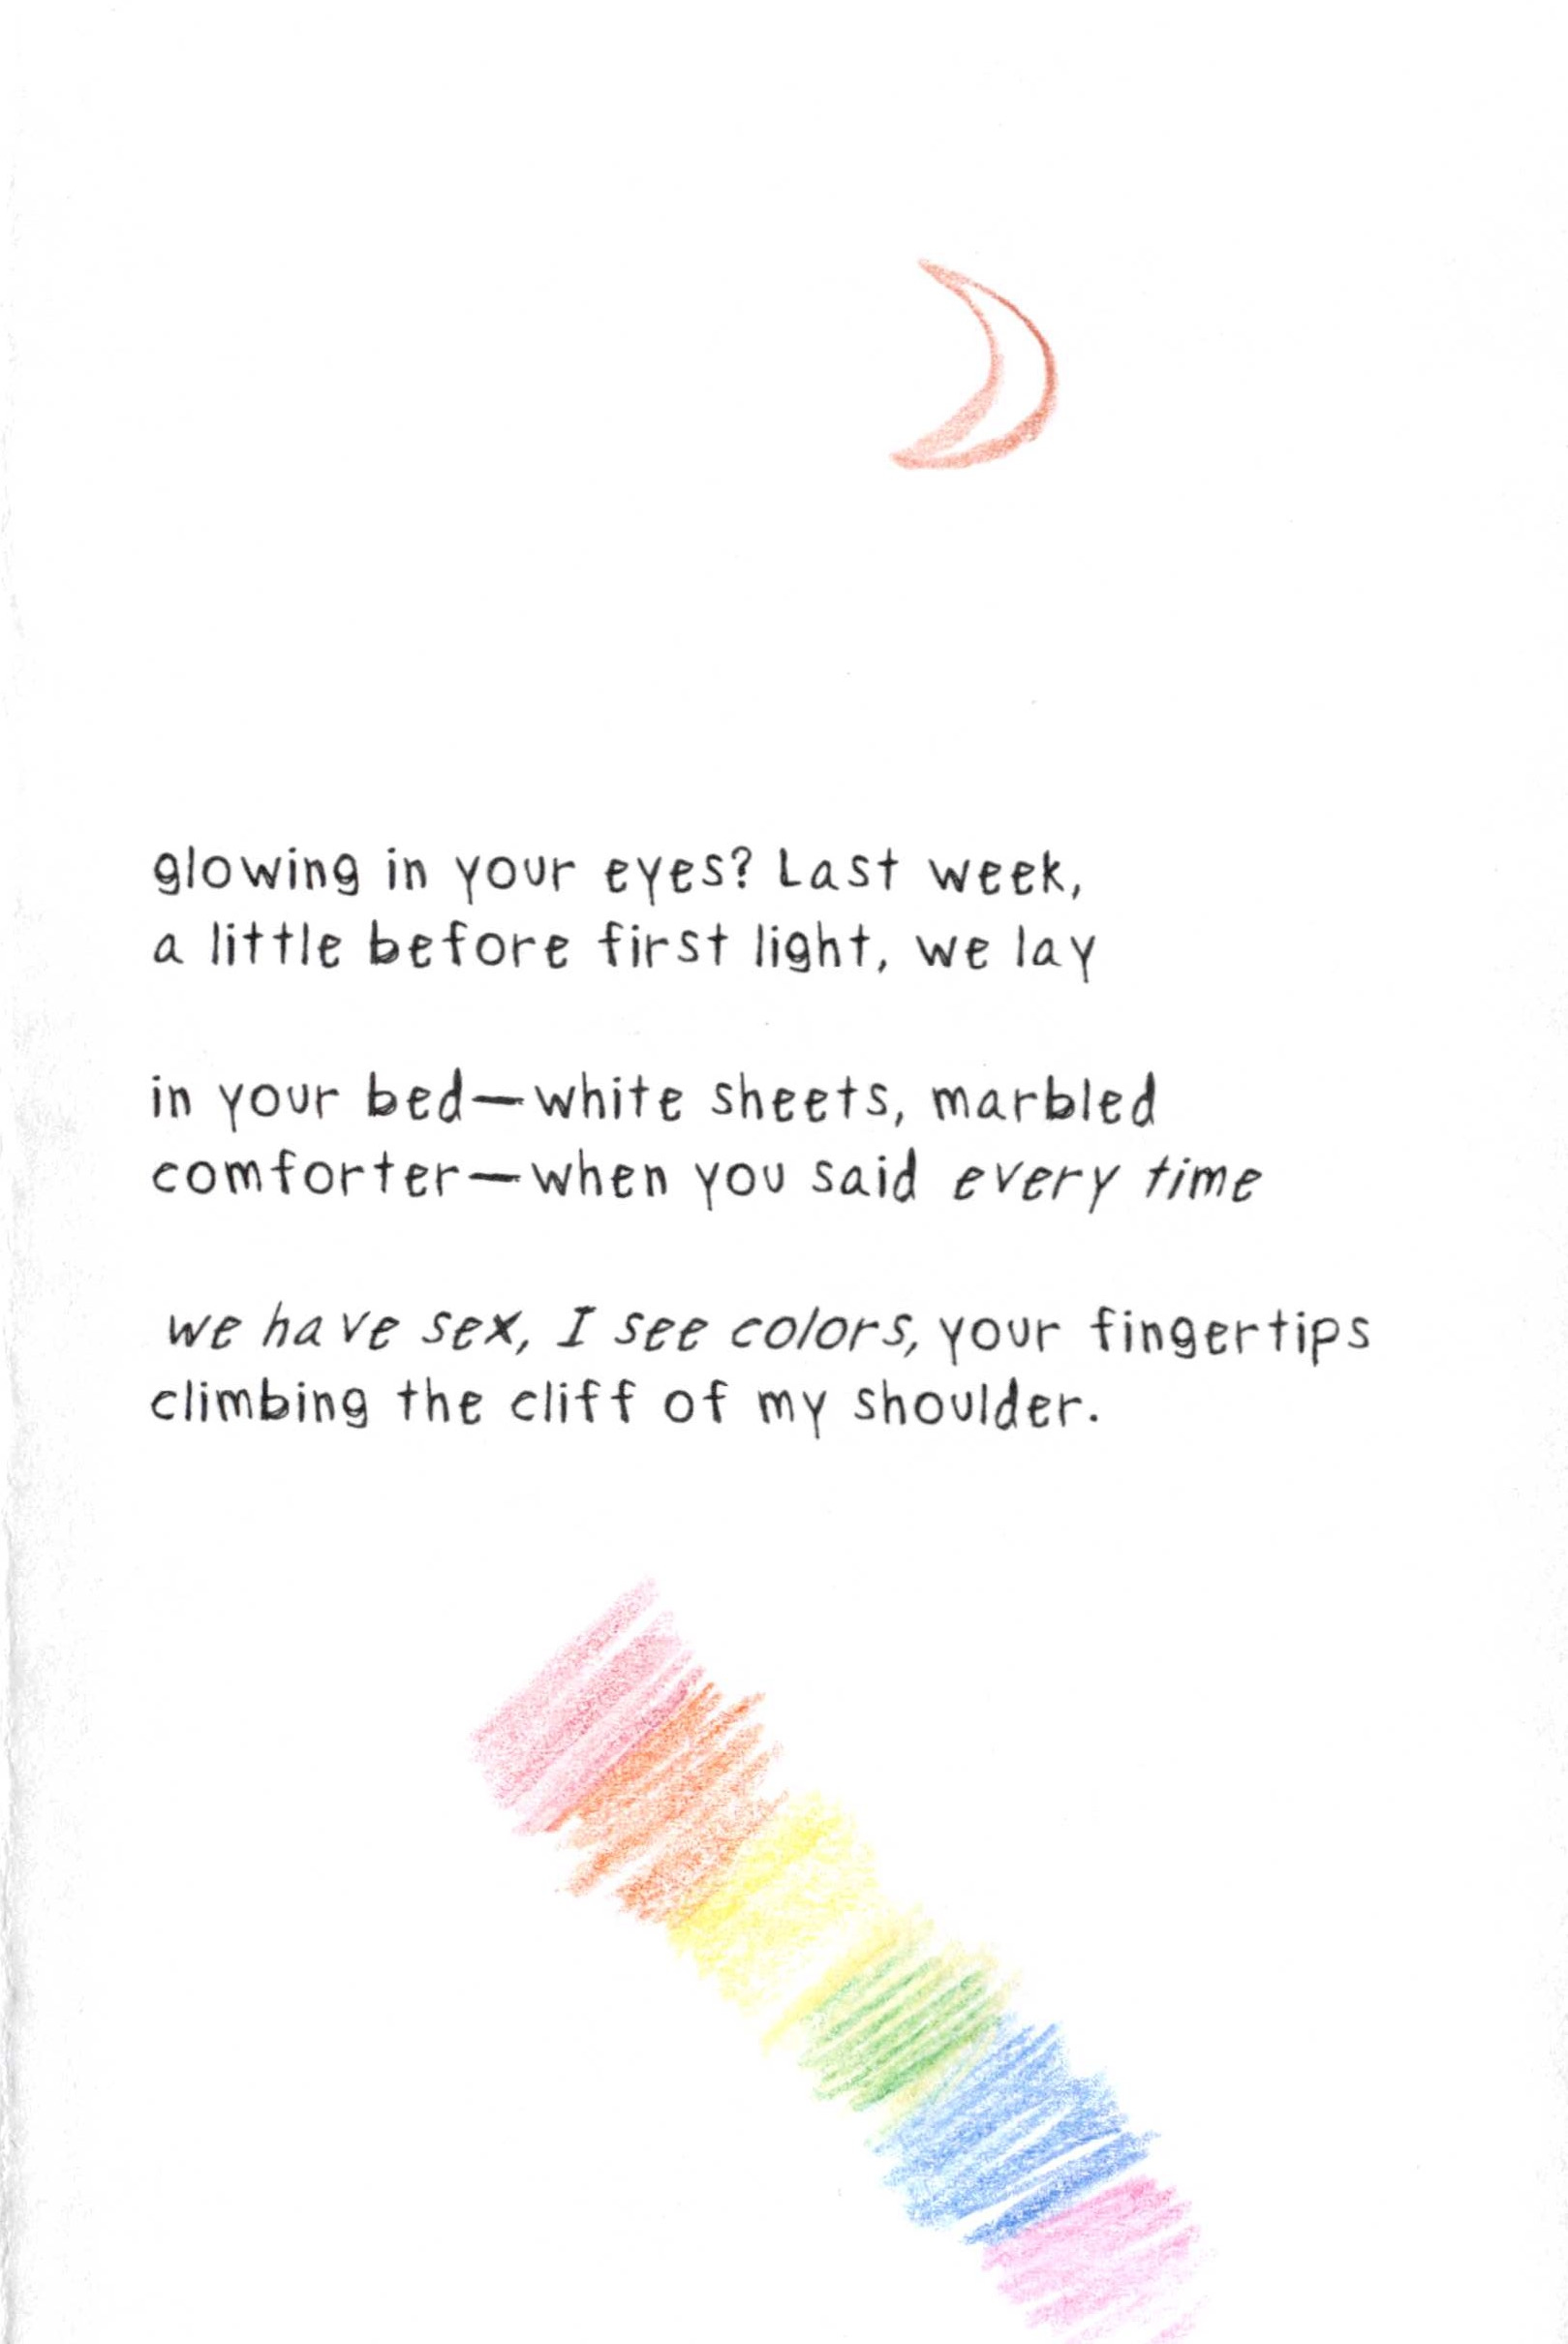 glowing in your eyes? Last week,
a little before first light, we lay
in your bed—white sheets, marbled
comforter—when you said every time
we have sex, I see colors, your fingertips
climbing the cliff of my shoulder.